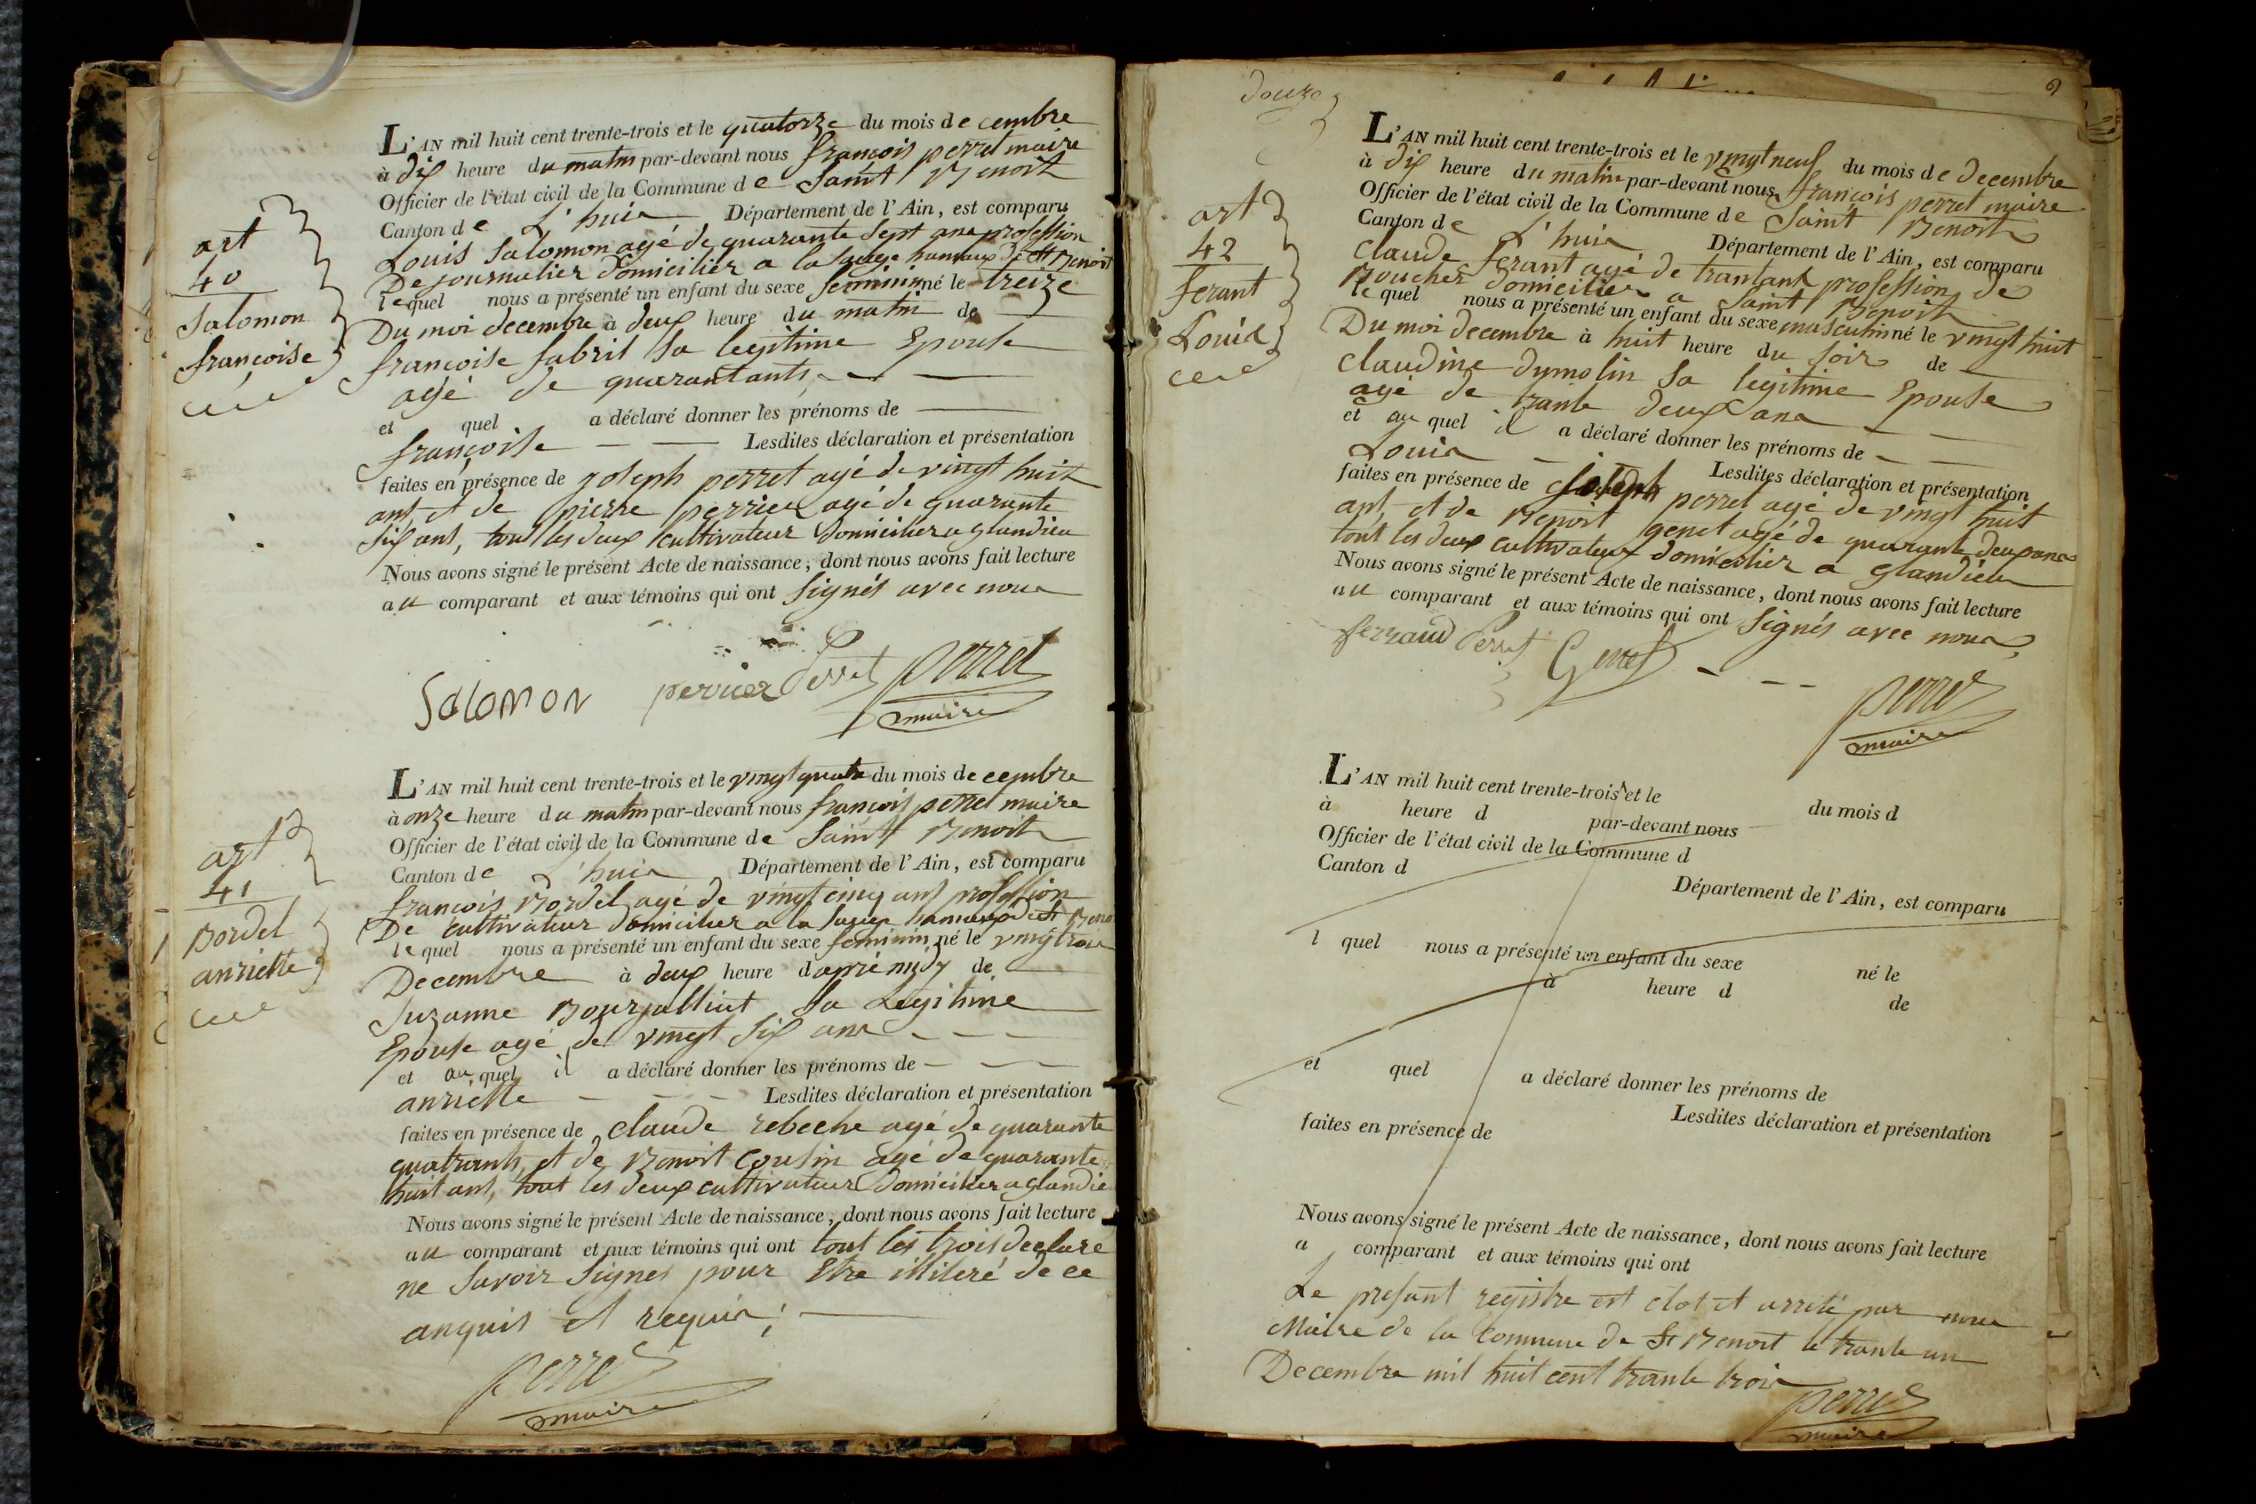 art
40
Salomon
françoise
L'AN mil huit cent trente-trois et le quatorze du mois de cembre
à dix heure du matin par-devant nous françois perret maire
Officier de l'état civil de la Commune de Saint Benoit
Canton de L'huis Département de l'Ain, est comparu
Louis Salomon agé de quarante Sept ans profession
De journalier Domicilier a la Sauge hamaux de St Benoit
lequel nous a présenté un enfant du sexe feminin né le treize
Du moi decembre à deux heure du matin de
françoise fabril Sa legitime Epouse
agé de quarantants
et quel a déclaré donner les prénoms de
françoise Lesdites déclaration et présentation
faites en présence de joseph perret agé de vingt huit
ant et de pierre perrier agé de quarante
Six ans, tout les deux cultivateur Domicilier a glandieu
Nous avons signé le présent Acte de naissance, dont nous avons fait lecture
au comparant et aux témoins qui ont Signés avec nous
Salomon perrier Perret perret
maire
art
41
Bordel
anriette
L'AN mil huit cent trente-trois et le vingt quatre du mois de cembre
à onze heure du matin par-devant nous françois perret maire
Officier de l'état civil de la Commune de Saint Benoit
Canton de L'huis Département de l'Ain, est comparu
françois Bordel agé de vingt cinq ans profession
De cultivateur Domicilier a la Sauge hamaux de St Beno
lequel nous a présenté un enfant du sexe feminin né le vingt trois
Decembre à deux heure daprè midy de
Suzanne Sa Legitime
Epouse agé de vingt Six ans
et au quel il a déclaré donner les prénoms de
anriette Lesdites déclaration et présentation
faites en présence de Claude rebeche agé de quarante
quatrants et de Benoit Cousin agé de quarante
huit ans, tout les deux cultivateur Domicilier a glandie
Nous avons signé le présent Acte de naissance, dont nous avons fait lecture
au comparant et aux témoins qui ont tout les trois declaré
ne Savoir Signer pour Etre illiteré de ce
anquis et requis;
perret
maire
douze
art
42
ferant
Louis
L'AN mil huit cent trente-trois et le vingt neuf du mois de decembre
à dix heure du matin par-devant nous françois perret maire
Officier de l'état civil de la Commune de Saint Benoit
Canton de L'huis Département de l'Ain, est comparu
Claude ferant agé de trantant profession de
Boucher Domicilier a Saint Benoit
lequel nous a présenté un enfant du sexe masculin né le vingt huit
Du moi decembre à huit heure du Soir de
Claudine dymolin Sa legitime Epouse
agé de trante deux ans
et au quel il a déclaré donner les prénoms de
Louis Lesdites déclaration et présentation
faites en présence de joseph perret agé de vingt huit
ant et de Benoit genet agé de quarante deux ans
tout les deux cultivateur domicilier a glandieu
Nous avons signé le présent Acte de naissance, dont nous avons fait lecture
au comparant et aux témoins qui ont Signés avec nous
ferraud Perret Genet
perret
maire
L'AN mil huit cent trente-trois et le du mois d
à heure d par-devant nous
Officier de l'état civil de la Commune d
Canton d Département de l'Ain, est comparu
l quel nous a présenté un enfant du sexe né le
à heure d de
et quel a déclaré donner les prénoms de
Lesdites déclaration et présentation
faites en présence de
Nous avons signé le présent Acte de naissance, dont nous avons fait lecture
a comparant et aux témoins qui ont
Le presant registre est clot et arrité par nous
Maire de la Commune de St Benoit le trante un
Decembre mil huit cent trante trois
perret
maire